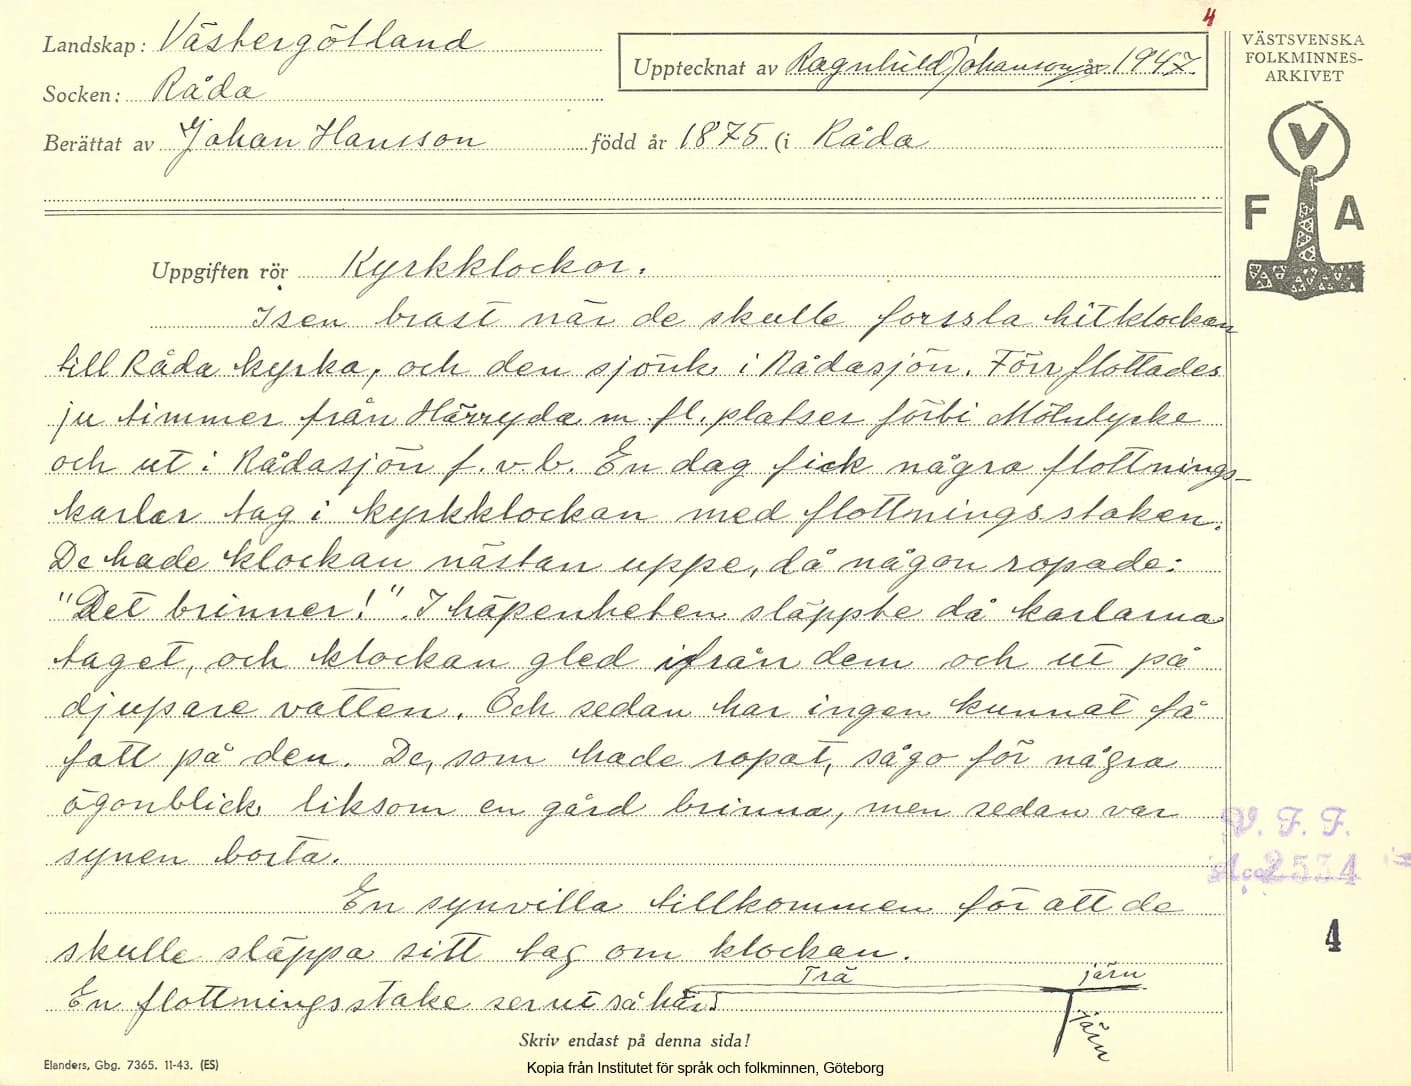 4
Landskap: Västergötland
Upptecknat av Ragnhild Johanson år 1947.
VÄSTSVENSKA
FOLKMINNES-
ARKIVET
Socken: Råda
Berättat av Johan Hansson född år 1875 (i Råda
V
F A
Uppgiften rör Kyrkklockor.
Isen brast när de skulle forsla hitklockan
till Råda kyrka, och den sjönk i Rådasjön. Förr flottades
ju timmer från Härryda m. fl. platser förbi Mölnlycke
och ut i Rådasjön f. v. b. En dag fick några flottnings-
karlar tag i kyrkklockan med flottningsstaken.
De hade klockan nästan uppe, då någon ropade:
"Det brinner!". I häpenheten släppte då karlarna
taget, och klockan gled ifrån dem och ut på
djupare vatten. Och sedan har ingen kunnat få
fatt på den. De, som hade ropat, sågo för några
ögonblick liksom en gård brinna, men sedan var
synen borta.
V. F. F.
Acc 2534
En synvilla tillkommen för att de
skulle släppa sitt tag om klockan.
4
En flottningsstake ser ut så här:
Trä järn
järn
Skriv endast på denna sida!
Elanders, Gbg. 7365. 11-43. (ES)
Kopia från Institutet för språk och folkminnen, Göteborg